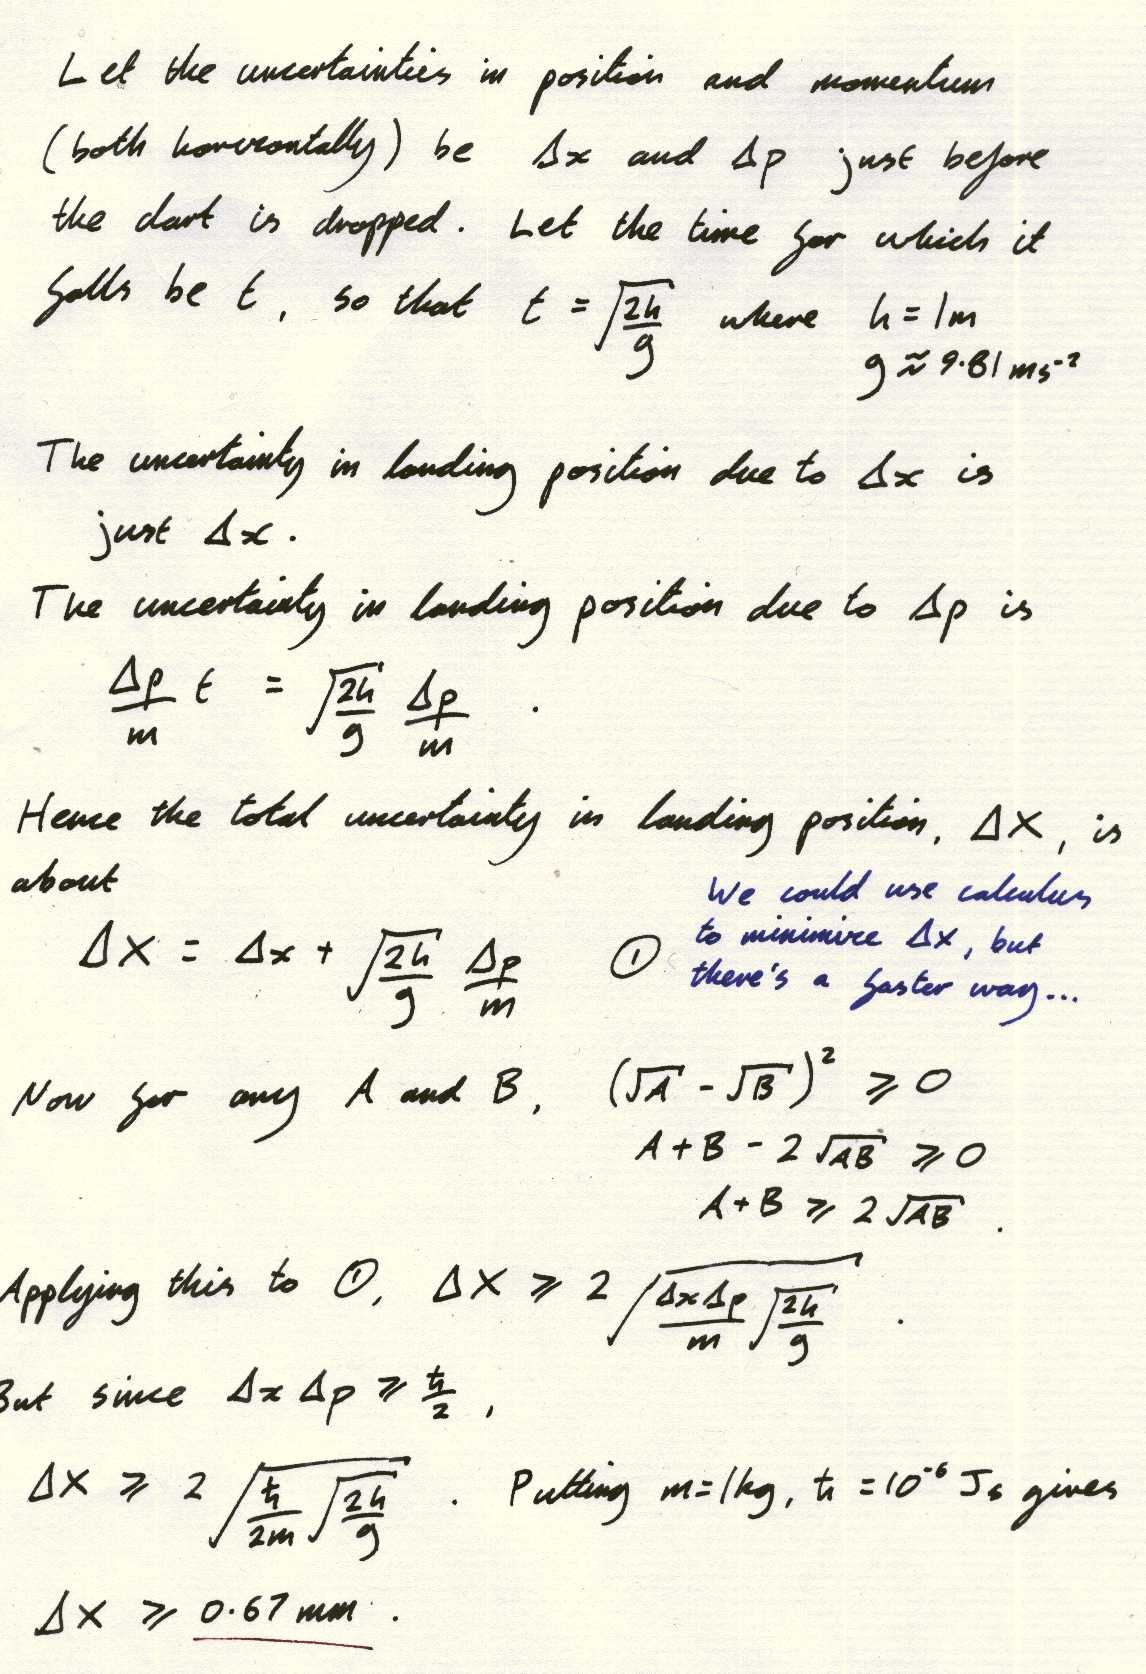 Let the uncertainties in position and momentum
(both horizontally) be Δx and Δp just before
the dart is dropped. Let the time for which it
falls be t, so that t = √(2h/g) where h = 1m
g ≈ 9.81 ms⁻²
The uncertainty in landing position due to Δx is
just Δx.
The uncertainty in landing position due to Δp is
Δp/m t = √(2h/g) Δp/m .
Hence the total uncertainty in landing position, ΔX, is
about
ΔX = Δx + √(2h/g) Δp/m ①
We could use calculus
to minimize Δx, but
there's a faster way...
Now for any A and B, (√A - √B)² ⩾ 0
A + B - 2√AB ⩾ 0
A + B ⩾ 2√AB .
Applying this to ①, ΔX ⩾ 2√(ΔxΔp/m √(2h/g)) .
But since Δx Δp ⩾ ħ/2 ,
ΔX ⩾ 2√(ħ/2m √(2h/g)) . Putting m=1kg, ħ = 10⁻⁶ Js gives
ΔX ⩾ 0.67 mm .